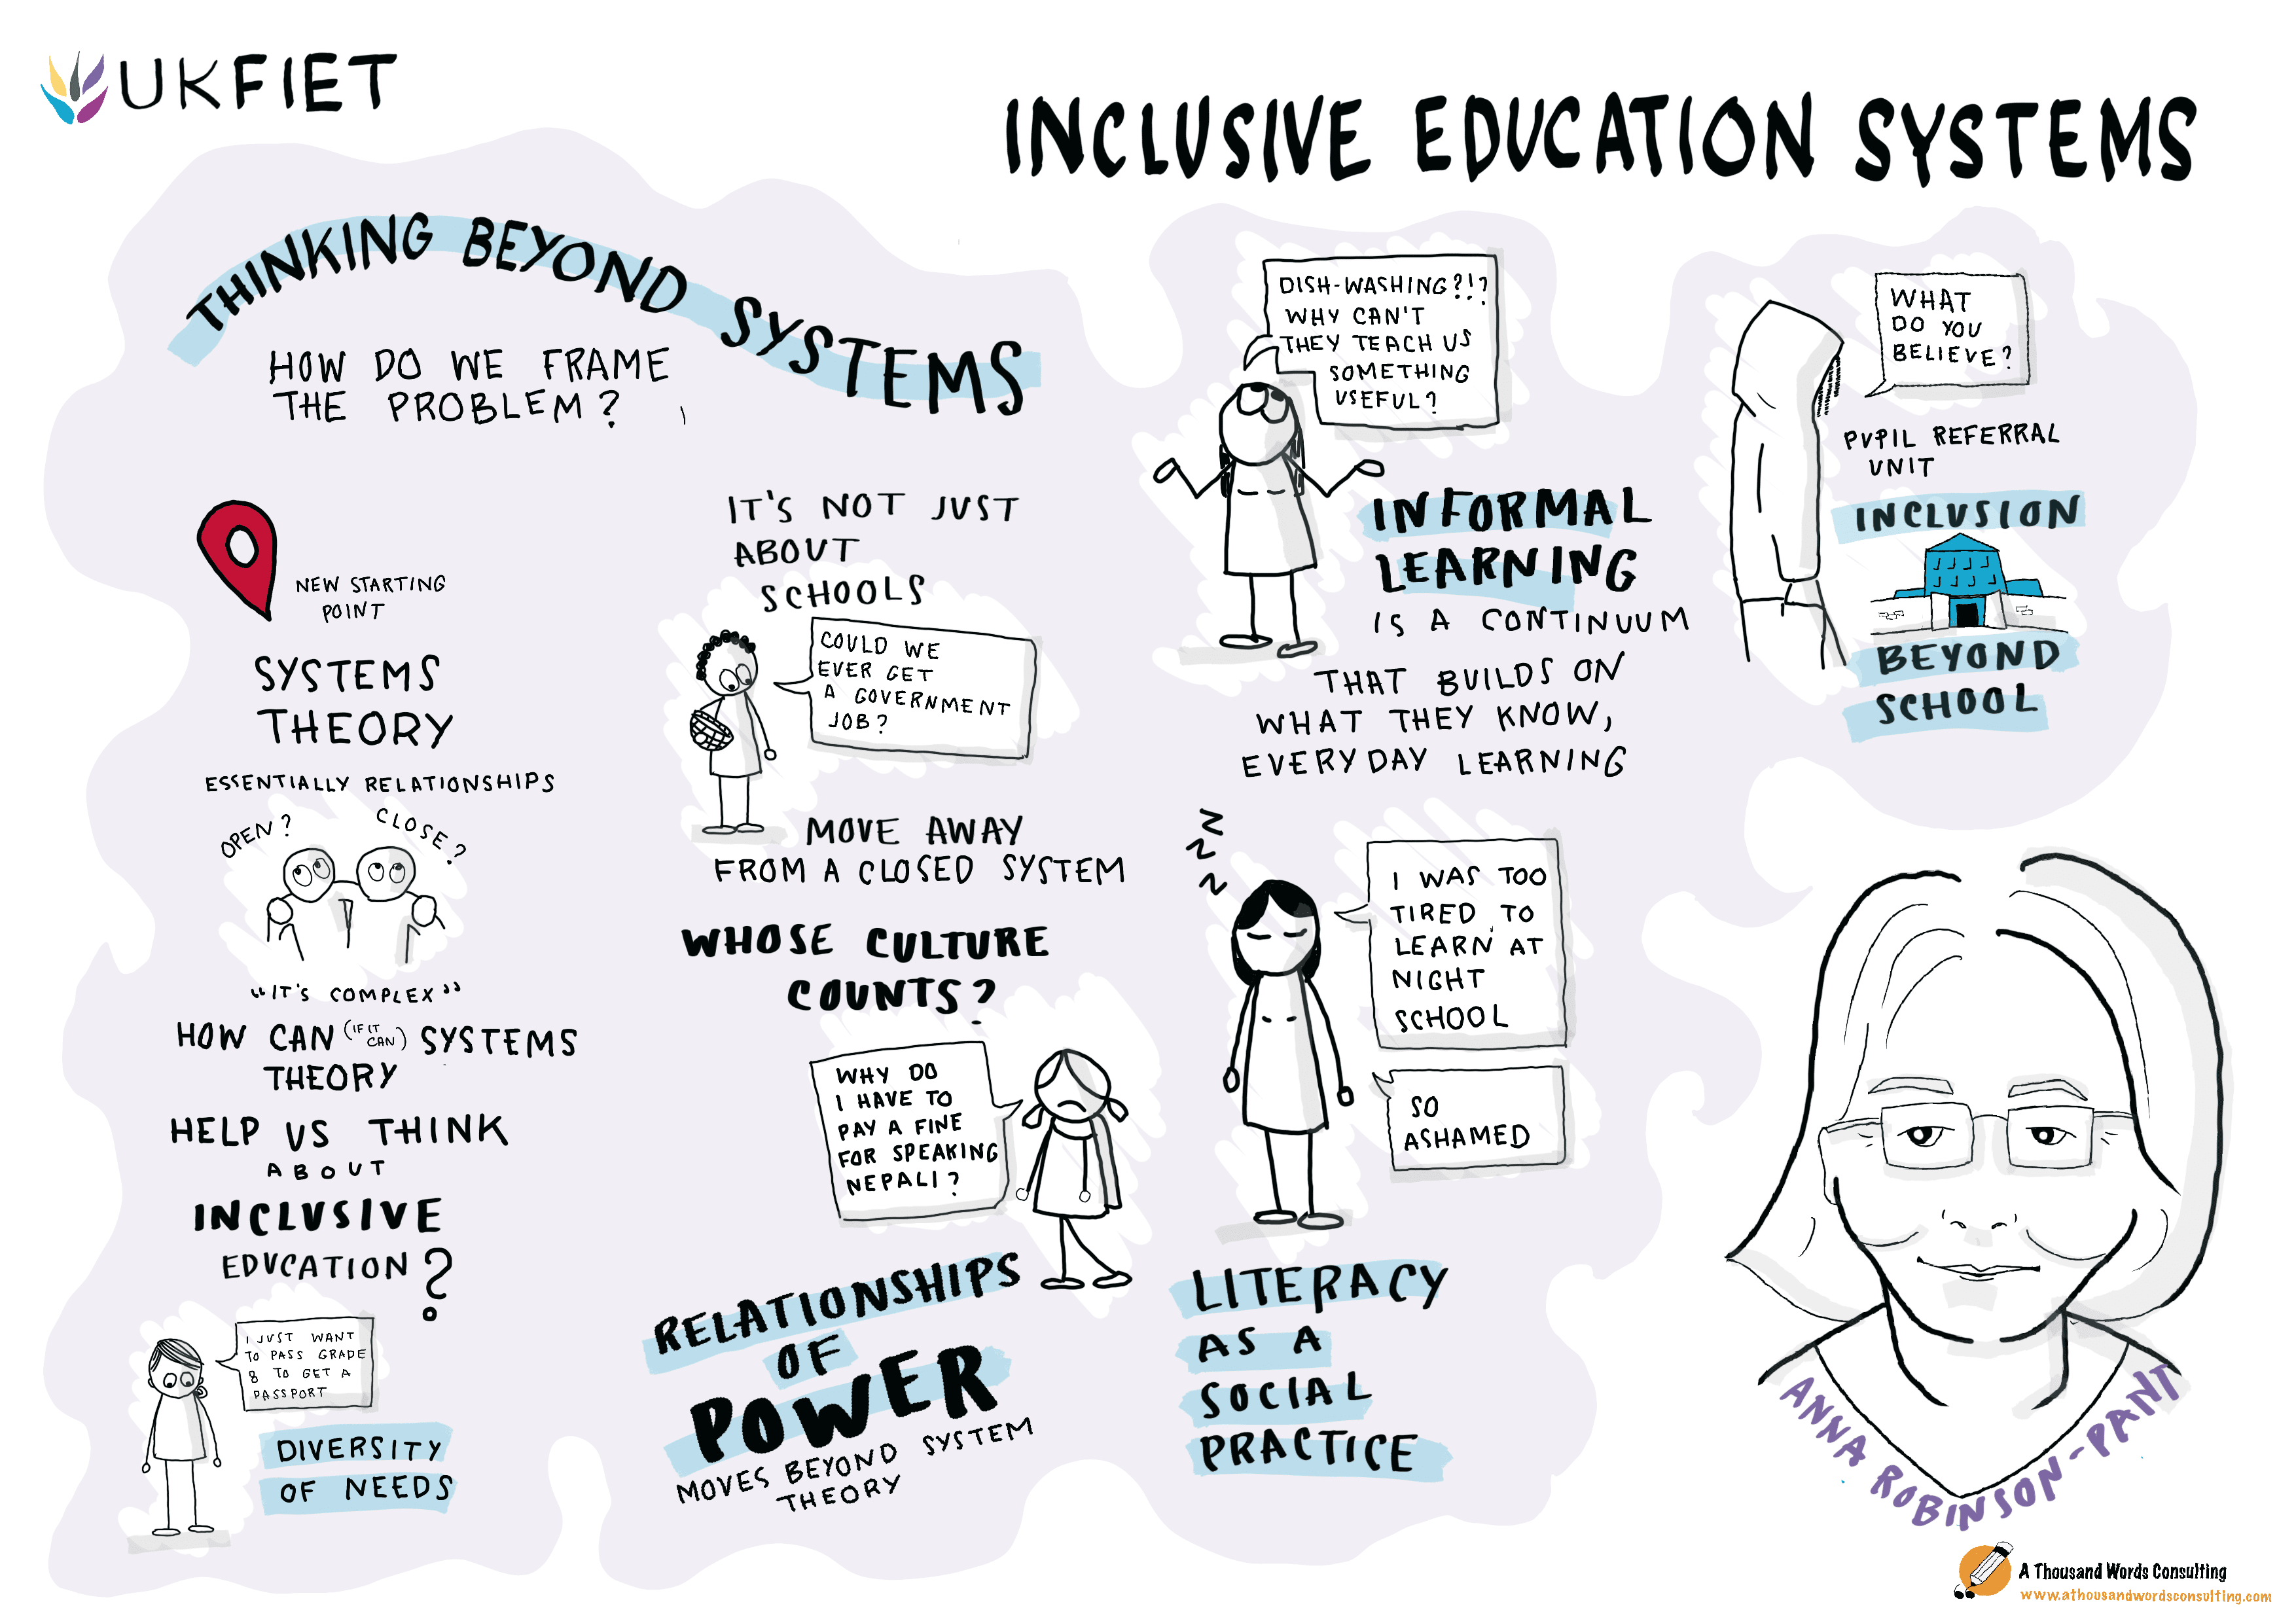 UKFIET
INCLUSIVE EDUCATION SYSTEMS
THINKING BEYOND SYSTEMS
HOW DO WE FRAME
THE PROBLEM?
NEW STARTING
POINT
SYSTEMS
THEORY
ESSENTIALLY RELATIONSHIPS
OPEN?
CLOSE?
"IT'S COMPLEX"
HOW CAN (IF IT CAN) SYSTEMS
THEORY
HELP US THINK
ABOUT
INCLUSIVE
EDUCATION?
I JUST WANT
TO PASS GRADE
8 TO GET A
PASSPORT
DIVERSITY
OF NEEDS
IT'S NOT JUST
ABOUT
SCHOOLS
COULD WE
EVER GET
A GOVERNMENT
JOB?
MOVE AWAY
FROM A CLOSED SYSTEM
WHOSE CULTURE
COUNTS?
WHY DO
I HAVE TO
PAY A FINE
FOR SPEAKING
NEPALI?
RELATIONSHIPS
OF
POWER
MOVES BEYOND SYSTEM
THEORY
DISH-WASHING?!?
WHY CAN'T
THEY TEACH US
SOMETHING
USEFUL?
INFORMAL
LEARNING
IS A CONTINUUM
THAT BUILDS ON
WHAT THEY KNOW,
EVERYDAY LEARNING
ZZZ
I WAS TOO
TIRED TO
LEARN AT
NIGHT
SCHOOL
SO
ASHAMED
LITERACY
AS A
SOCIAL
PRACTICE
WHAT
DO YOU
BELIEVE?
PUPIL REFERRAL
UNIT
INCLUSION
BEYOND
SCHOOL
ANNA ROBINSON-PANT
A Thousand Words Consulting
www.athousandwordsconsulting.com